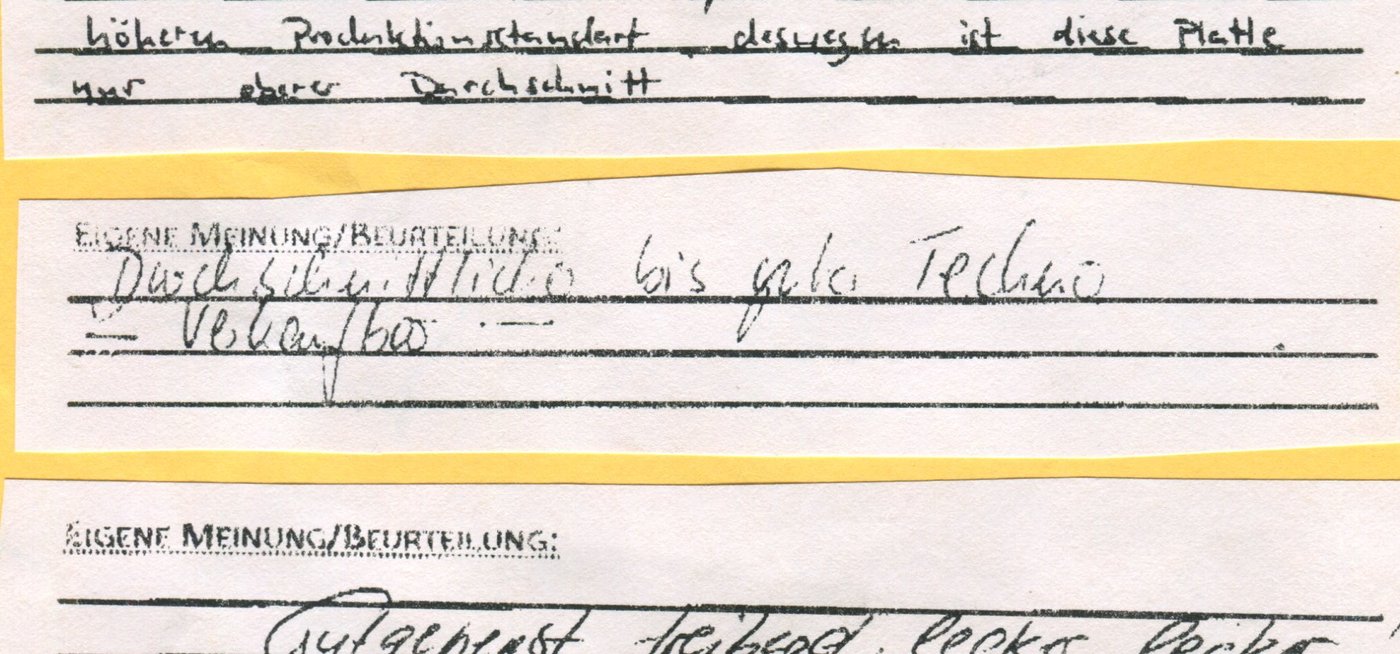 höheren Produktionsstandart, deswegen ist diese Platte
nur oberer Durchschnitt
EIGENE MEINUNG/BEURTEILUNG:
Durchschnittliche bis guter Techno
— Verkaufbar —
EIGENE MEINUNG/BEURTEILUNG:
treibend, lecker lecker